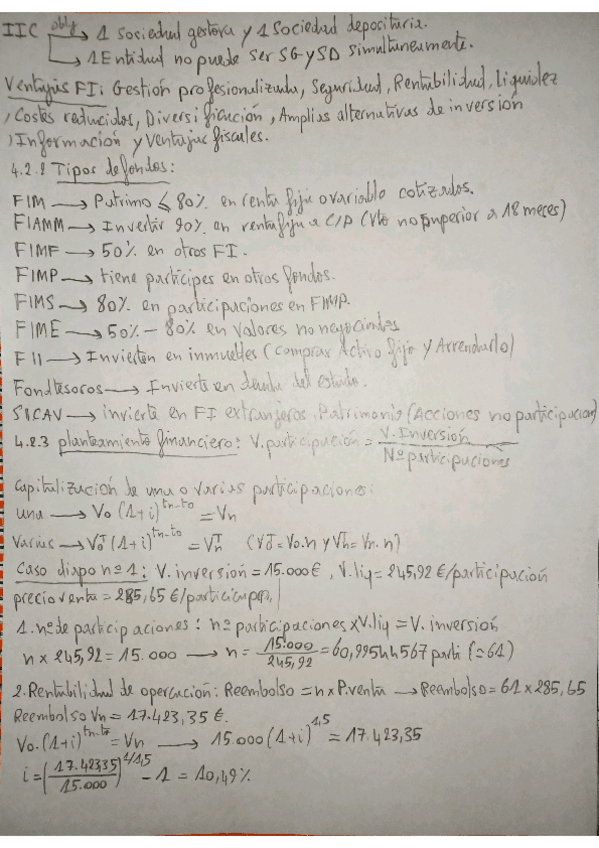 IIC oblig → 1 Sociedad gestora y 1 Sociedad depositaria.
→ 1 Entidad no puede ser SG y SD simultaneamente.
Ventajas FI: Gestión profesionalizada, Seguridad, Rentabilidad, liquidez
, Costes reducidos, Diversificación, Amplias alternativas de inversión
, Información y Ventajas fiscales.
4.2.2 Tipos de fondos:
FIM → Patrimo ≤ 80% en renta fija o variable cotizados.
FIAMM → Invertir 90% en renta fija a C/P (Vto no superior a 18 meces)
FIMF → 50% en otros FI.
FIMP → tiene partícipes en otros fondos.
FIMS → 80% en participaciones en FIMP.
FIME → 50% – 80% en valores no negociados
FII → Invierten en inmuebles (comprar Activo fijo y Arrendarlo)
Fondtesoros → Invierte en deuda del estado.
SICAV → invierte en FI extranjeros. Patrimonio (Acciones no participacion)
4.2.3 planteamiento financiero: V.participación = V.Inversión / Nº participaciones
Capitalización de una o varias participaciones:
una → Vo (1+i)^tn-to = Vn
Varias → Vo^T (1+i)^tn-to = Vn^T (Vo^T = Vo.n y Vn^T = Vn.n)
Caso diapo nº 1: V.inversión = 15.000€, V.liq = 245,92 €/participación
precio venta = 285,65 €/
1. nº de participaciones: nº participaciones x V.liq = V. inversión
n x 245,92 = 15.000 → n = 15.000 / 245,92 = 60,99544567 parti (≈ 61)
2. Rentabilidad de operación: Reembolso = n x P.venta → Reembolso = 61 x 285,65
Reembolso Vn = 17.423,35 €.
Vo.(1+i)^tn-to = Vn → 15.000 (1+i)^1,5 = 17.423,35
i = (17.423,35 / 15.000)^1/1,5 - 1 = 10,49%